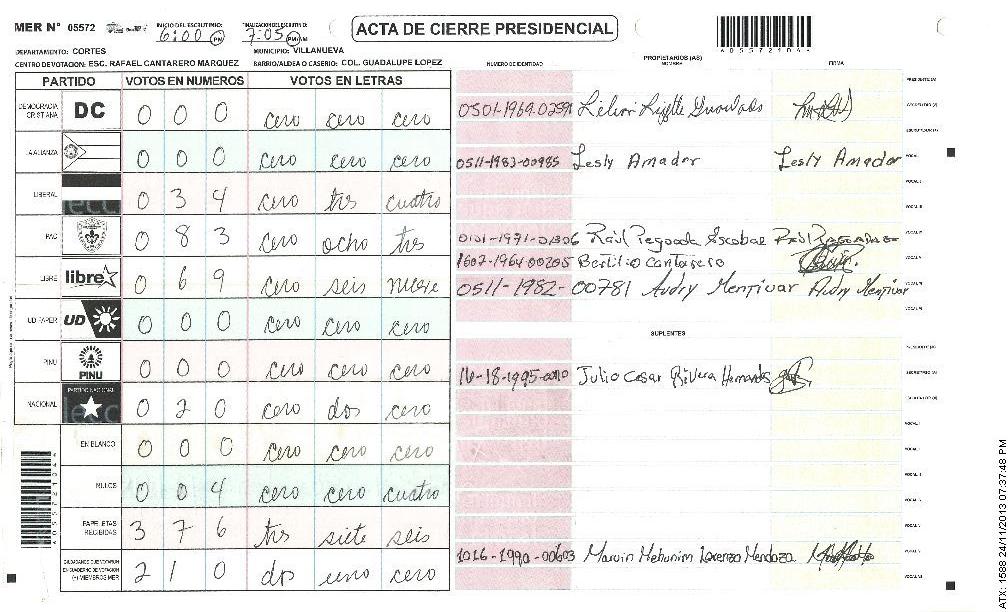 MER Nº 05572 INICIO DEL ESCRUTINIO: 6:00 PM FINALIZACION ESCRUTINIO: 7:05 PM/AM ACTA DE CIERRE PRESIDENCIAL A05572104A
DEPARTAMENTO: CORTES MUNICIPIO: VILLANUEVA
CENTRO DE VOTACION: ESC. RAFAEL CANTARERO MARQUEZ BARRIO/ALDEA O CASERIO: COL. GUADALUPE LOPEZ
NUMERO DE IDENTIDAD PROPIETARIOS (AS) NOMBRE FIRMA
PARTIDO VOTOS EN NUMEROS VOTOS EN LETRAS
DEMOCRACIA CRISTIANA DC 0 0 0 cero cero cero
LA ALIANZA 0 0 0 cero cero cero
LIBERAL 0 3 4 cero tres cuatro
PAC 0 8 3 cero ocho tres
LIBRE libre 0 6 9 cero seis nueve
UD FAPER UD 0 0 0 cero cero cero
PINU PINU 0 0 0 cero cero cero
NACIONAL PARTIDO NACIONAL 0 2 0 cero dos cero
EN BLANCO 0 0 0 cero cero cero
NULOS 0 0 4 cero cero cuatro
PAPELETAS RECIBIDAS 3 7 6 tres siete seis
2 1 0 dos uno cero
0511-1983-00985 Lesly Amador Lesly Amador
Escobar
1607-1964-00205 Bertilio Cantarero
0511-1982-00781 Audry Menjivar Audry Menjivar
SUPLENTES
Julio Cesar Rivera Hernandes
Lorenzo Mendoza
ATX: 1588 24/11/2013 07:37:48 PM